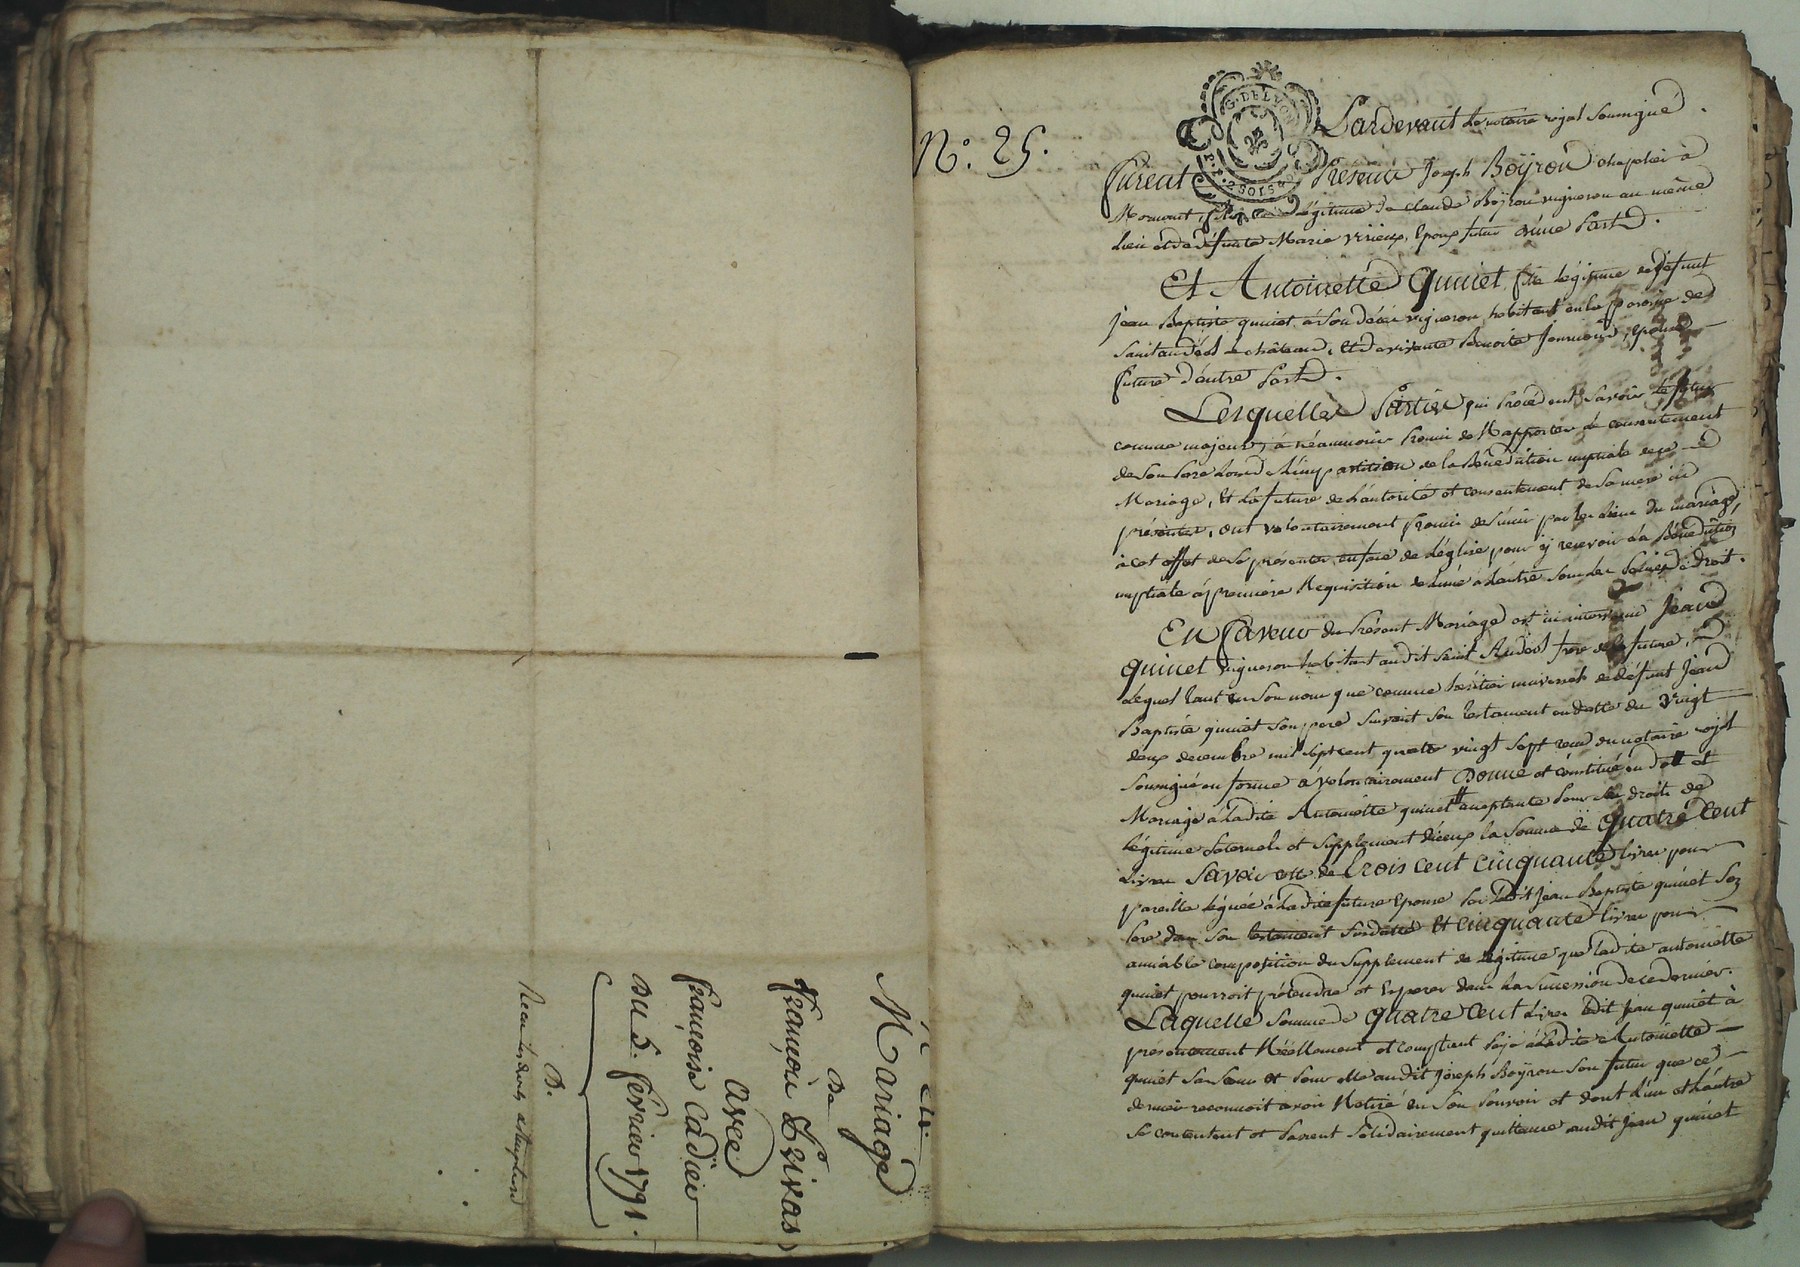 Mariage
De
françois Privas
avec
françoise Cadier
Du 5. fevrier 1791.
D.
N.° 25.
G. DE LYON
2 SOLS
Pardevant Le notaire royal Soussigné.
furent Présents Joseph Boÿron chapelier à
Mornant, fils légitime de Claude Boÿron vigneron au même
Lieu et de defunte Marie Virieux, Epoux futur d'une Part.
Et Antoinette Quinet fille Légitime de defunt
Jean Baptiste quinet à son décès vigneron, habitant en la paroisse de
Saint andéol le château, Et de vivante Benoite, Epouse
future d'autre Part.
Lesquelles Parties qui Procédent Savoir le futur
comme majeur, a néanmoins Promis de Rapporter le consentement
de Son Pere Lors de L'impartition de la Bénédiction nuptiale de ce
Mariage, Et La future de L'autorité et consentement de Sa mere ici
présente, ont volontairement Promis de S'unir par les Liens du mariage,
à cet effet de Se présenter en face de L'église pour y recevoir la Bénédiction
nuptiale à premiere Requisition de L'une à L'autre Sous Les Peines de droit.
En faveur du Présent Mariage est ici intervenu Jean
Quinet vigneron habitant audit Saint Andéol frere de la future,
Lequel tant en Son nom que comme héritier universel de defunt Jean
Baptiste quinet Son pere Suivant Son testament en datte du vingt
deux decembre mil Sept cent quatre vingt Sept reçu du notaire royal
Soussigné en forme a volontairement Donné et constitué en dott et
Mariage à Ladite Antoinette quinet acceptante Pour Ses droits de
Légitime Paternels et Supplement d'iceux la Somme de Quatre Cent
Livres Savoir celle de Trois cent cinquante Livres pour
pareille Léguée à Ladite future Epouse Par Ledit Jean Baptiste quinet Son
Pere dans Son testament Susdatté Et Cinquante Livres pour
amiable composition du Supplement de Légitime que Ladite antoinette
quinet pourroit prétendre et Esperer dans La Succession de ce dernier.
Laquelle Somme de Quatre Cent Livres Ledit Jean quinet à
présentement Réellement et comptant Payé à Ladite Antoinette
quinet Sa Sœur et Pour Elle audit Joseph Boÿron Son futur que ce
dernier reconnoit avoir Retiré en Son Pouvoir et dont L'un et L'autre
Se contentent et Passent Solidairement quittance audit Jean quinet